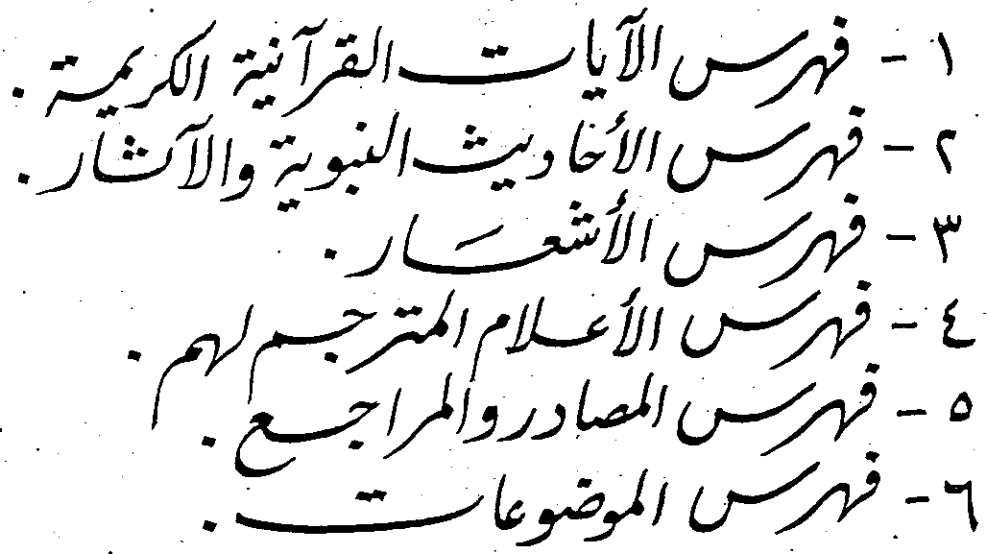 ١ - فهرس الآيات القرآنية الكريمة .
٢ - فهرس الأحاديث النبوية والآثار .
٣ - فهرس الأشعار .
٤ - فهرس الأعلام المترجم لهم .
٥ - فهرس المصادر والمراجع .
٦ - فهرس الموضوعات .